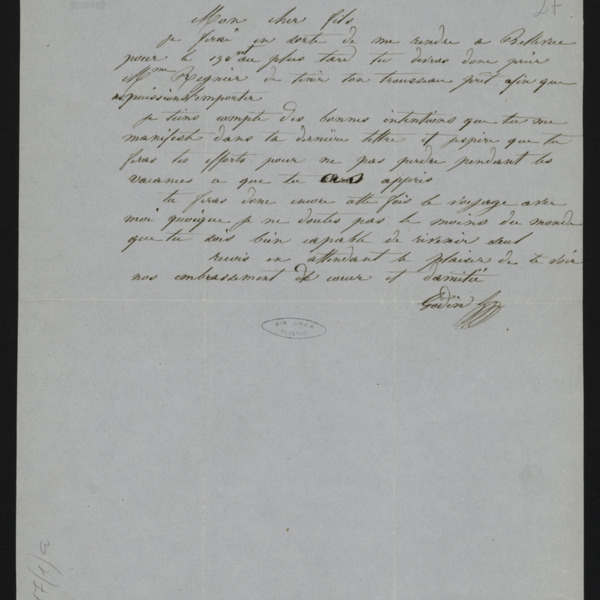 Mon cher fils
je ferai en sorte de me rendre a Bellevue
pour le 13 au plus tard tu diras donc prier
Mme Regnier de tenir ton trousseau prêt afin que
ns puissions l'emporter
je tiens compte des bonnes intentions que tu me
manifeste dans ta dernière lettre et j'espère que tu
feras tes efforts pour ne pas perdre pendant les
vacances ce que tu as appris
tu feras donc encore cette fois le voyage avec
moi quoique je ne doutes pas le moins du monde
que tu sois bien capable de revenir seul
reçois en attendant le plaisir de te voir
nos embrassement de cœur et d'amitié
Godin